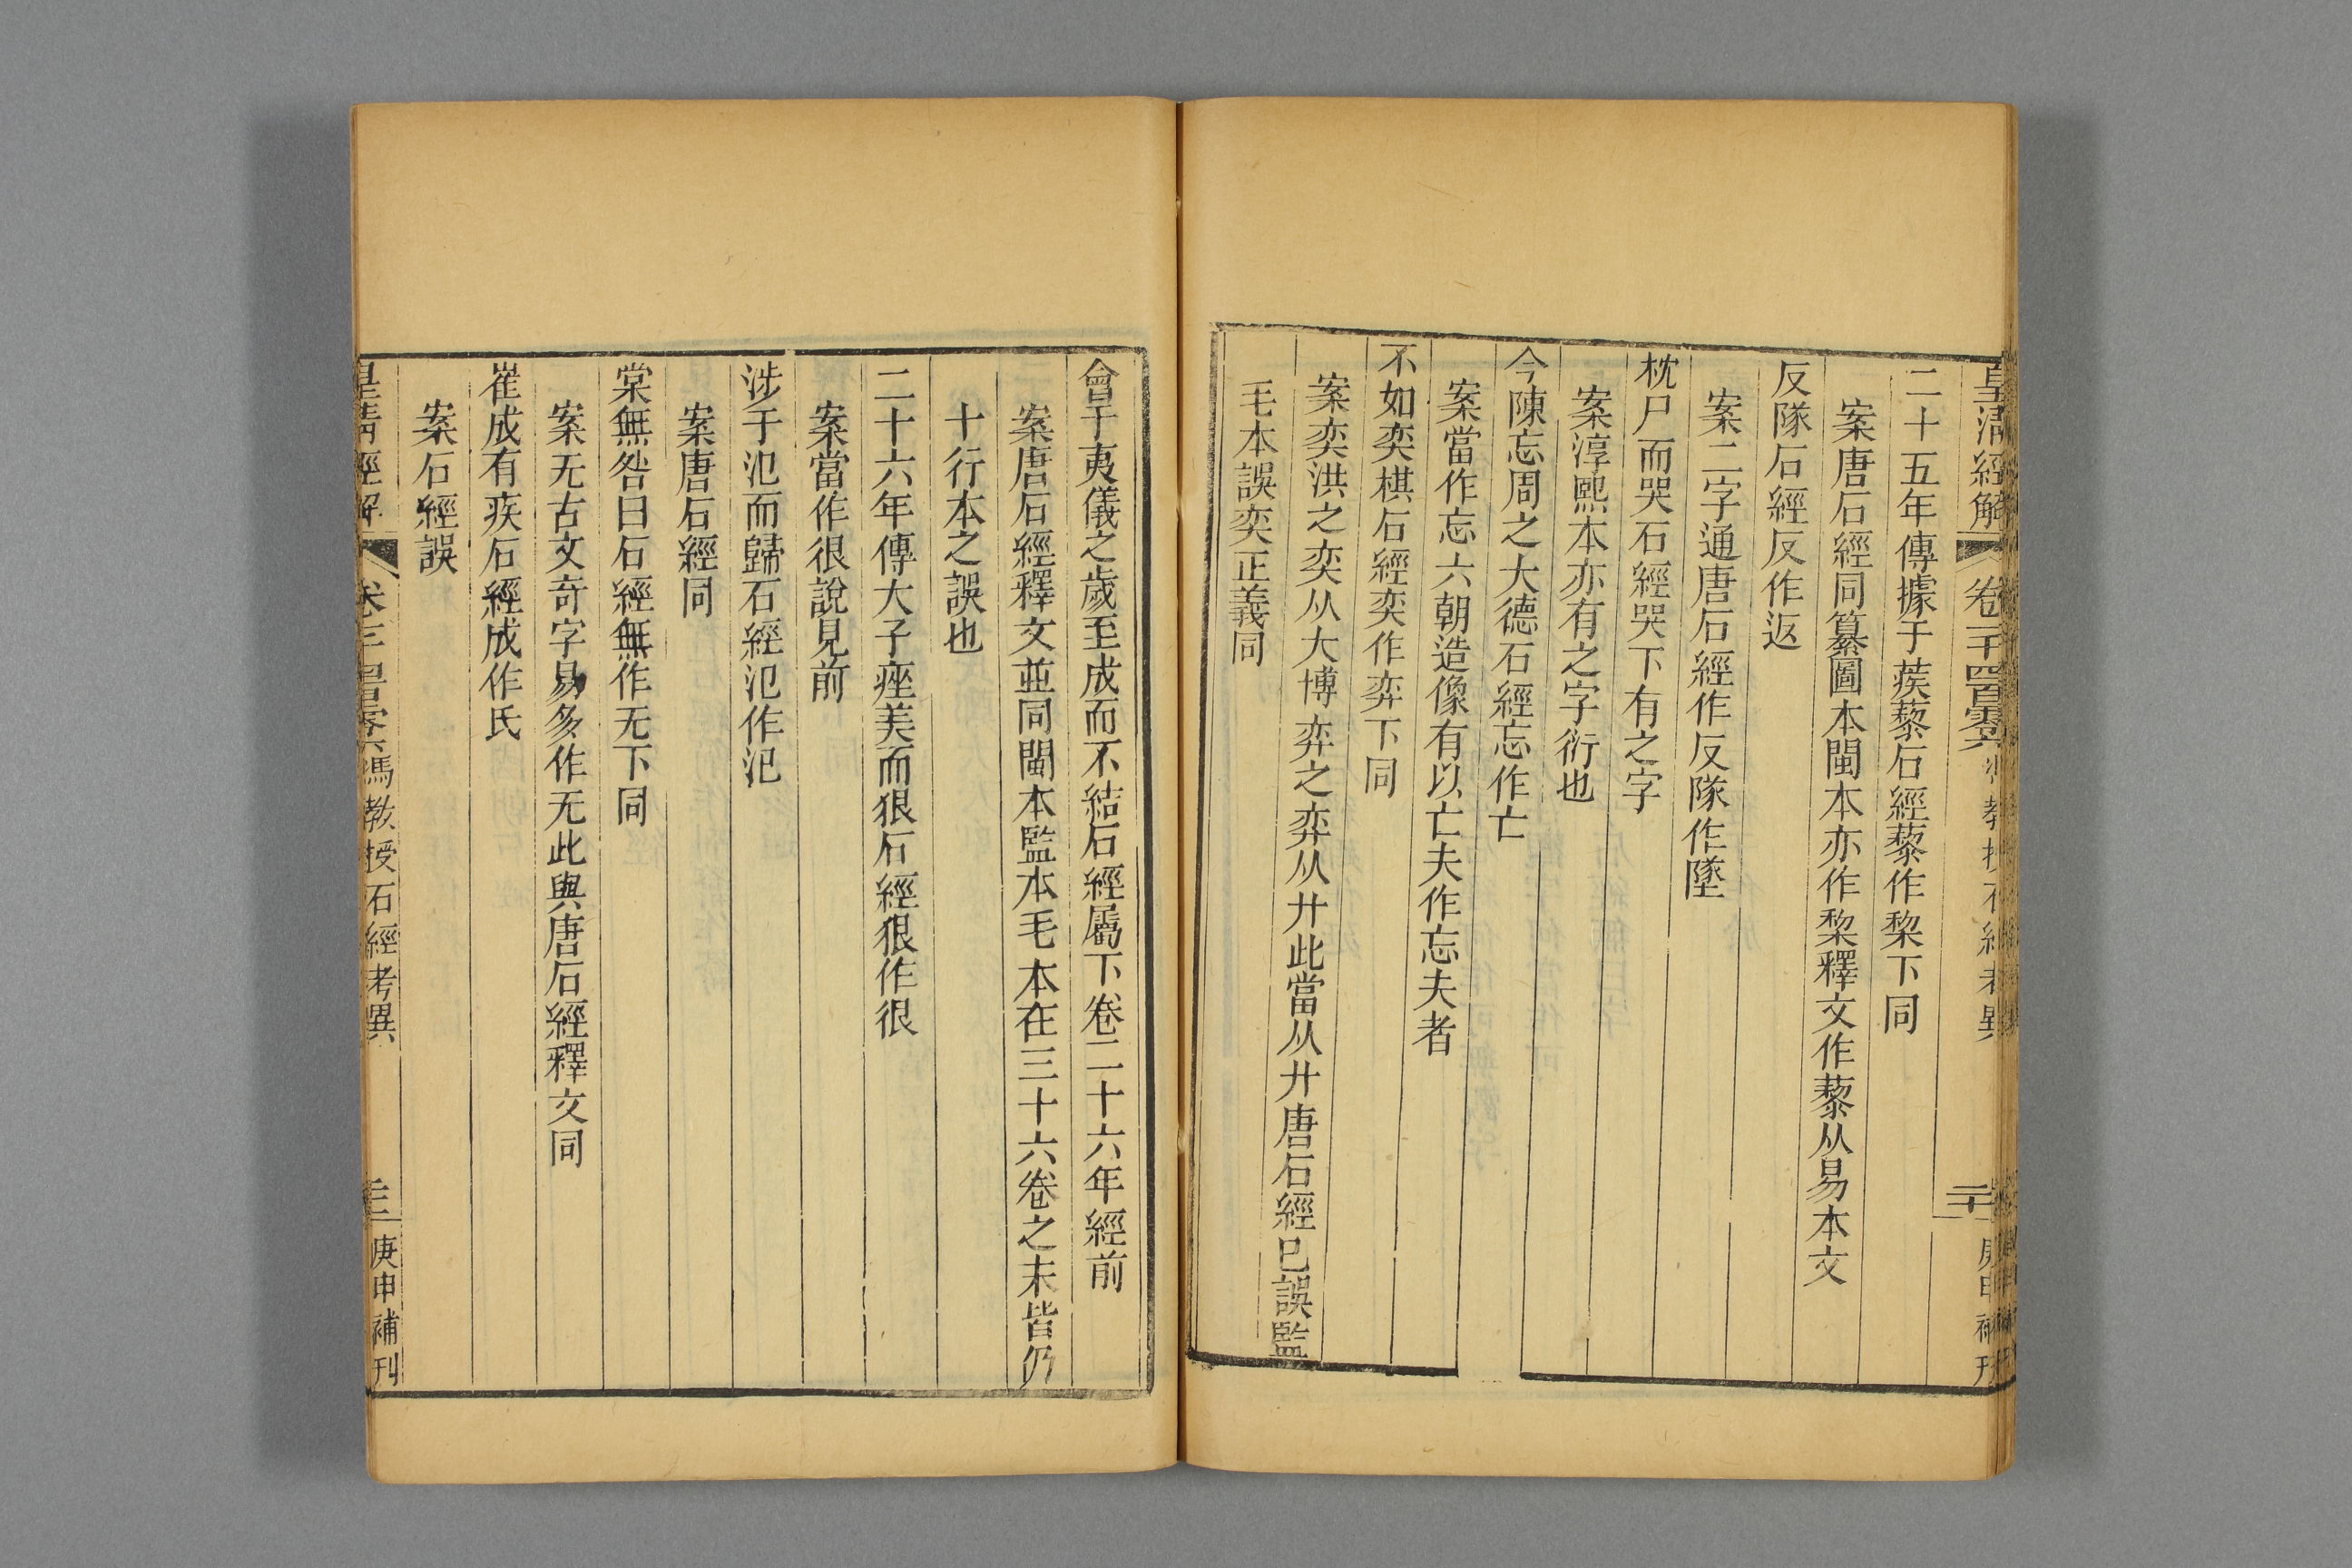 皇清經解 卷一千四百零六 教授石經考異 二十 庚申補刊
二十五年傳據于蒺藜石經藜作棃下同
案唐石經同纂圖本閩本亦作棃釋文作藜从易本文
反隊石經反作返
案二字通唐石經作反隊作墜
枕尸而哭石經哭下有之字
案淳熙本亦有之字衍也
今陳忘周之大德石經忘作亡
案當作忘六朝造像有以亡夫作忘夫者
不如奕棋石經奕作弈下同
案奕洪之奕从大博弈之弈从廾此當从廾唐石經已誤監
毛本誤奕正義同
會于夷儀之歲至成而不結石經屬下卷二十六年經前
案唐石經釋文並同閩本監本毛本在三十六卷之末皆仍
十行本之誤也
二十六年傳大子痤美而狠石經狠作很
案當作很說見前
涉于氾而歸石經氾作汜
案唐石經同
棠無咎曰石經無作无下同
案无古文奇字易多作无此與唐石經釋文同
崔成有疾石經成作氏
案石經誤
皇清經解 馮教授石經考異 庚申補刊